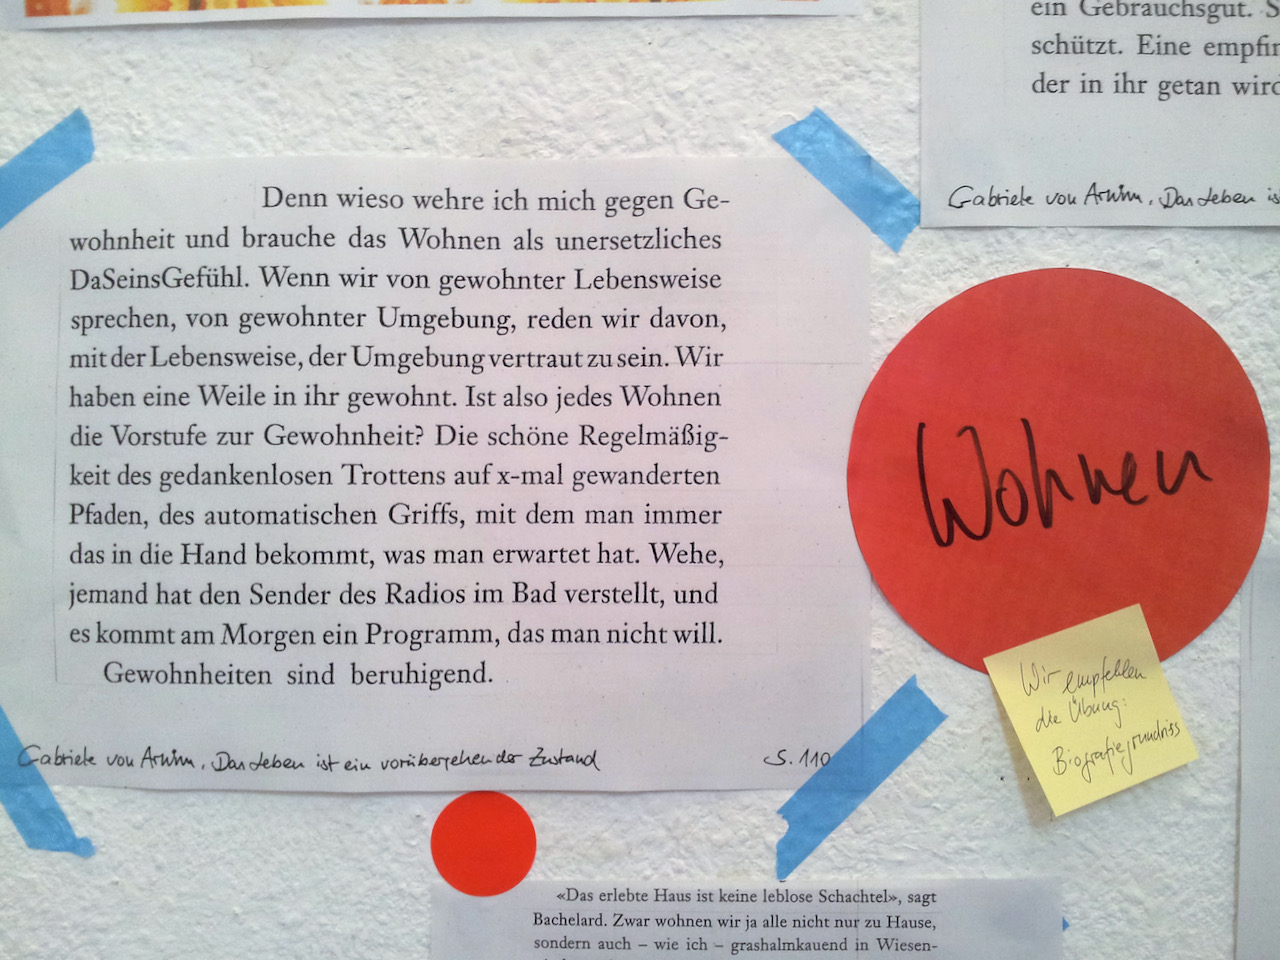 ein Gebrauchsgut. S
schützt. Eine empfin
der in ihr getan wird
Gabriele von Arnim, Das Leben is
Denn wieso wehre ich mich gegen Ge-
wohnheit und brauche das Wohnen als unersetzliches
DaSeinsGefühl. Wenn wir von gewohnter Lebensweise
sprechen, von gewohnter Umgebung, reden wir davon,
mit der Lebensweise, der Umgebung vertraut zu sein. Wir
haben eine Weile in ihr gewohnt. Ist also jedes Wohnen
die Vorstufe zur Gewohnheit? Die schöne Regelmäßig-
keit des gedankenlosen Trottens auf x-mal gewanderten
Pfaden, des automatischen Griffs, mit dem man immer
das in die Hand bekommt, was man erwartet hat. Wehe,
jemand hat den Sender des Radios im Bad verstellt, und
es kommt am Morgen ein Programm, das man nicht will.
Gewohnheiten sind beruhigend.
Gabriele von Arnim, Das Leben ist ein vorübergehender Zustand S. 110
Wohnen
Wir empfehlen
die Übung:
Biografiegrundriss
«Das erlebte Haus ist keine leblose Schachtel», sagt
Bachelard. Zwar wohnen wir ja alle nicht nur zu Hause,
sondern auch – wie ich – grashalmkauend in Wiesen-